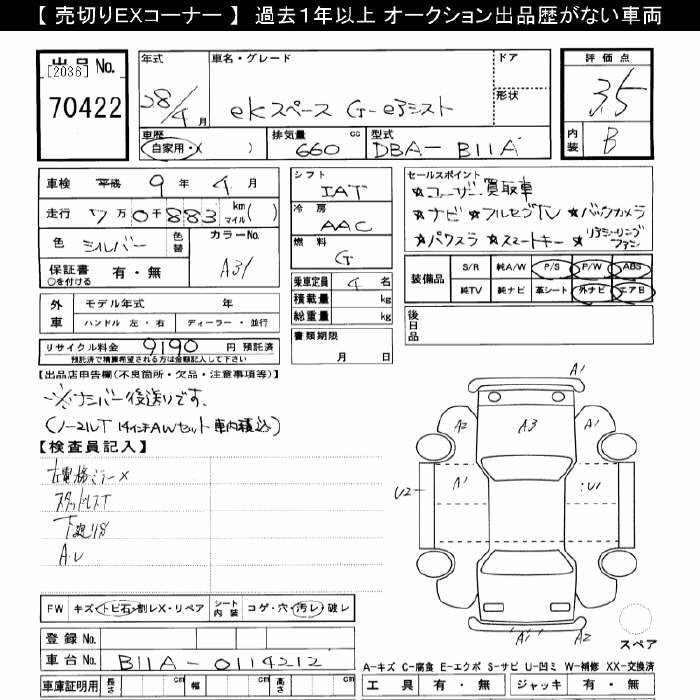 【 売切りEXコーナー 】 過去1年以上 オークション出品歴がない車両
出品 No. [2036]
70422
年式 28/4月
車名・グレード ekスペース G-eアシスト
ドア
形状
評価点 3.5
内装 B
車歴 自家用・X ( )
排気量 660 cc
型式 DBA-B11A
車検 平成 9年 4月
走行 7万0千883 km マイル( )
色 シルバー 色替
カラーNo. A31
保証書 有・無
○を付ける
シフト IAT
冷房 AAC
燃料 G
乗車定員 4名
積載量 kg
総重量 kg
書類期限
月 日
セールスポイント
☆ユーザー買取車
☆ナビ ☆フルセグTV ☆バックカメラ
☆パワスラ ☆スマートキー ☆リアシーリングファン
装備品 S/R 純A/W P/S P/W ABS
純TV 純ナビ 革シート 外ナビ エアB
外車 モデル年式 年
ハンドル 左・右 ディーラー・並行
後日品
リサイクル料金 9190 円 預託済
預託済で積算希望される方は金額記入して下さい
【出品店申告欄(不良箇所・欠品・注意事項等)】
※ナンバー後送りです.
(ノーマルT 14インチAWセット 車内積込)
【検査員記入】
左電格ミラーX
スタッドレスT
下廻りS
A.U
A1
A1 A3 A1
U2 A1 U1
A1 A2
スペア
FW キズ・トビ石・割レX・リペア シート内装 コゲ・穴・汚レ・破レ
登録 No.
車台 No. B11A-0114212
車庫証明用 長さ cm 幅 cm 高さ cm
A-キズ C-腐食 E-エクボ S-サビ U-凹ミ W-補修 XX-交換済
工具 有・無 ジャッキ 有・無